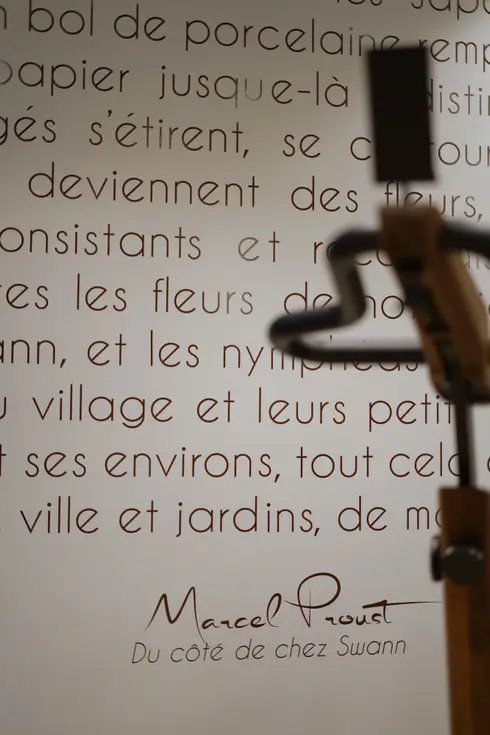 n bol de porcelaine remp
papier jusque-là distin
gés s'étirent, se
deviennent des fleurs,
onsistants et
res les fleurs de no
ann, et les nymphéas
u village et leurs petit
t ses environs, tout cela
ville et jardins, de m
Marcel Proust
Du côté de chez Swann